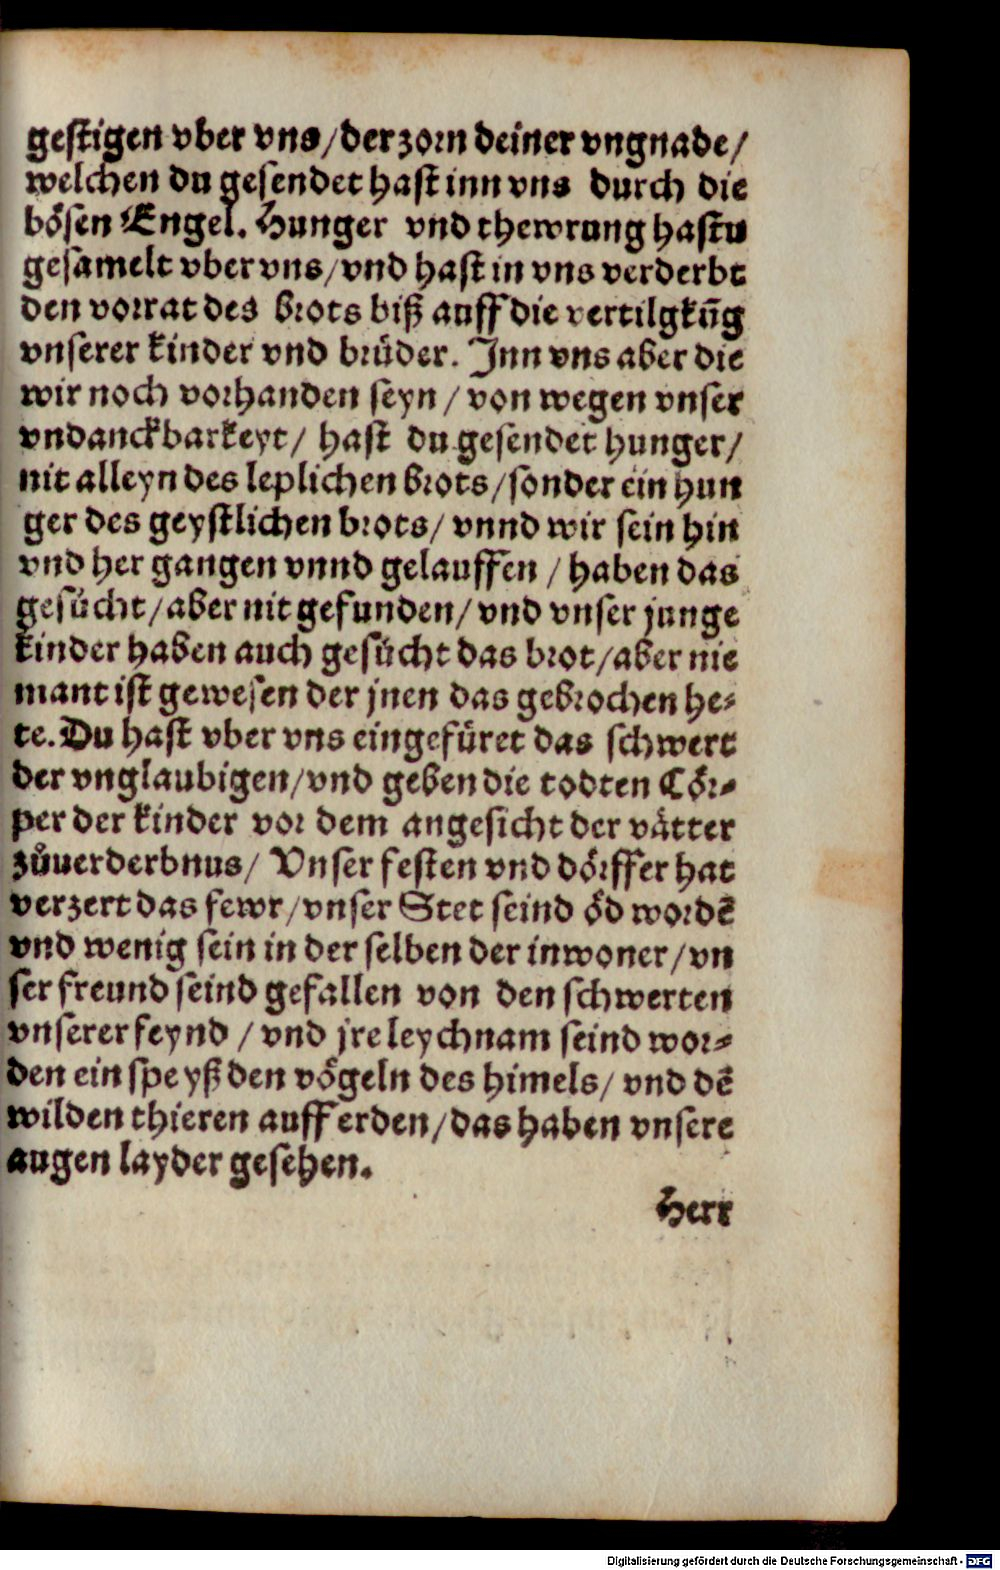 gestigen vber vns/der zorn deiner vngnade/
welchen du gesendet hast inn vns durch die
bösen Engel. Hunger vnd thewrung hastu
gesamelt vber vns/vnd hast in vns verderbt
den vorrat des brots biß auff die vertilgkūg
vnserer kinder vnd brüder. Jnn vns aber die
wir noch vorhanden seyn / von wegen vnser
vndanckbarkeyt/ hast du gesendet hunger/
nit alleyn des leplichen brots/sonder ein hun
ger des geystlichen brots/ vnnd wir sein hin
vnd her gangen vnnd gelauffen / haben das
gesücht/aber nit gefunden/vnd vnser junge
kinder haben auch gesücht das brot/aber nie
mant ist gewesen der jnen das gebrochen he⸗
te. Du hast vber vns eingefüret das schwert
der vnglaubigen/vnd geben die todten Cör⸗
per der kinder vor dem angesicht der vätter
zůuerderbnus/ Vnser festen vnd dörffer hat
verzert das fewr/vnser Stet seind öd wordē
vnd wenig sein in der selben der inwoner/vn
ser freund seind gefallen von den schwerten
vnserer feynd / vnd jre leychnam seind wor⸗
den ein speyß den vögeln des himels/ vnd dē
wilden thieren auff erden/das haben vnsere
augen layder gesehen.
Herr
Digitalisierung gefördert durch die Deutsche Forschungsgemeinschaft - DFG